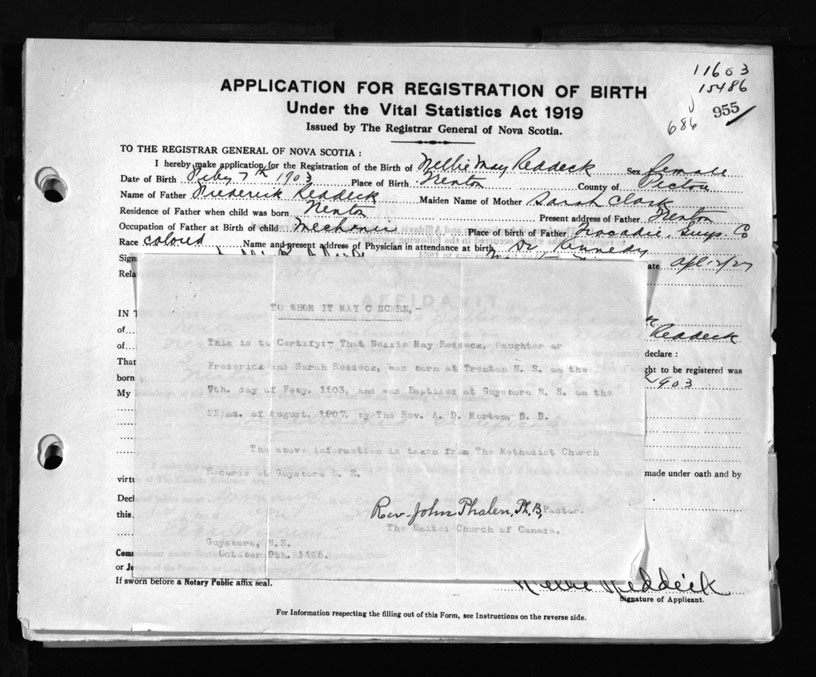 11603
15486
686 955
APPLICATION FOR REGISTRATION OF BIRTH
Under the Vital Statistics Act 1919
Issued by The Registrar General of Nova Scotia.
TO THE REGISTRAR GENERAL OF NOVA SCOTIA :
I hereby make application for the Registration of the Birth of Nellie May Reddeck Sex female
Date of Birth Feby 7th 1903 Place of Birth Trenton County of Pictou
Name of Father Frederick Reddeck Maiden Name of Mother Sarah Clark
Residence of Father when child was born Trenton Present address of Father Trenton
Occupation of Father at Birth of child Mechanic Place of birth of Father Tracadie, Guys. Co
Race colored Name and present address of Physician in attendance at birth Dr Kennedy
Sign
ate Apl
Rela
TO WHOM IT MAY CONCERN,-
IN T
of Reddeck
of This is to Certify:- That Nellie May Reddeck, Daughter of declare :
That Frederick and Sarah Reddeck, was born at Trenton N. S. on the ght to be registered was
born 7th. day of Feby. 1903, and was Baptized at Guysboro N. S. on the 903
My 22nd. of August, 1907, by The Rev. A. D. Morton, D. D.
The above information is taken from The Methodist Church
Records at Guysboro N. S. made under oath and by
virtu
Decl Rev. John Phalen, Ph.B, Pastor.
this The United Church of Canada.
Guysboro, N.S.
Com October 9th.
or J
If sworn before a Notary Public affix seal. Nellie Reddeck
Signature of Applicant.
For Information respecting the filling out of this Form, see Instructions on the reverse side.